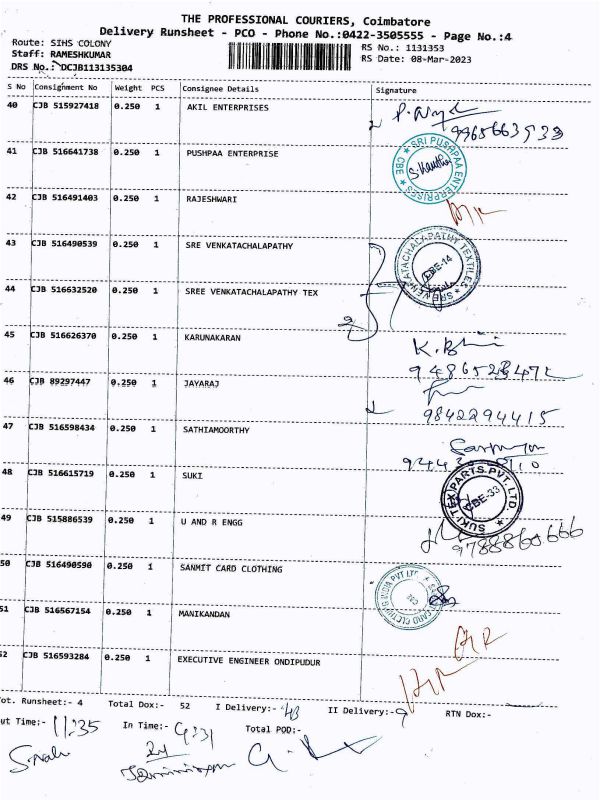 THE PROFESSIONAL COURIERS, Coimbatore
Delivery Runsheet - PCO - Phone No.:0422-3505555 - Page No.:4
Route: SIHS COLONY
Staff: RAMESHKUMAR
DRS No.: DCJB113135304
RS No.: 1131353
RS Date: 08-Mar-2023
S No Consignment No Weight PCS Consignee Details Signature
40 CJB 515927418 0.250 1 AKIL ENTERPRISES
9965663533
41 CJB 516641738 0.250 1 PUSHPAA ENTERPRISE
SRI PUSHPAA ENTERPRISES CBE
42 CJB 516491403 0.250 1 RAJESHWARI
43 CJB 516490539 0.250 1 SRE VENKATACHALAPATHY
SREE VENKATACHALAPATHY TEXTILES CBE-14
44 CJB 516632520 0.250 1 SREE VENKATACHALAPATHY TEX
2
45 CJB 516626370 0.250 1 KARUNAKARAN
46 CJB 89297447 0.250 1 JAYARAJ
9842294415
47 CJB 516598434 0.250 1 SATHIAMOORTHY
48 CJB 516615719 0.250 1 SUKI
SUKI TEX PARTS PVT. LTD CBE-33
49 CJB 515886539 0.250 1 U AND R ENGG
9788860666
50 CJB 516490590 0.250 1 SANMIT CARD CLOTHING
CARD CLOTHING INDIA PVT LTD
51 CJB 516567154 0.250 1 MANIKANDAN
52 CJB 516593284 0.250 1 EXECUTIVE ENGINEER ONDIPUDUR
Tot. Runsheet:- 4 Total Dox:- 52 I Delivery:- 43 II Delivery:- 9 RTN Dox:-
out Time:- 11:35 In Time:- 4:31 Total POD:-